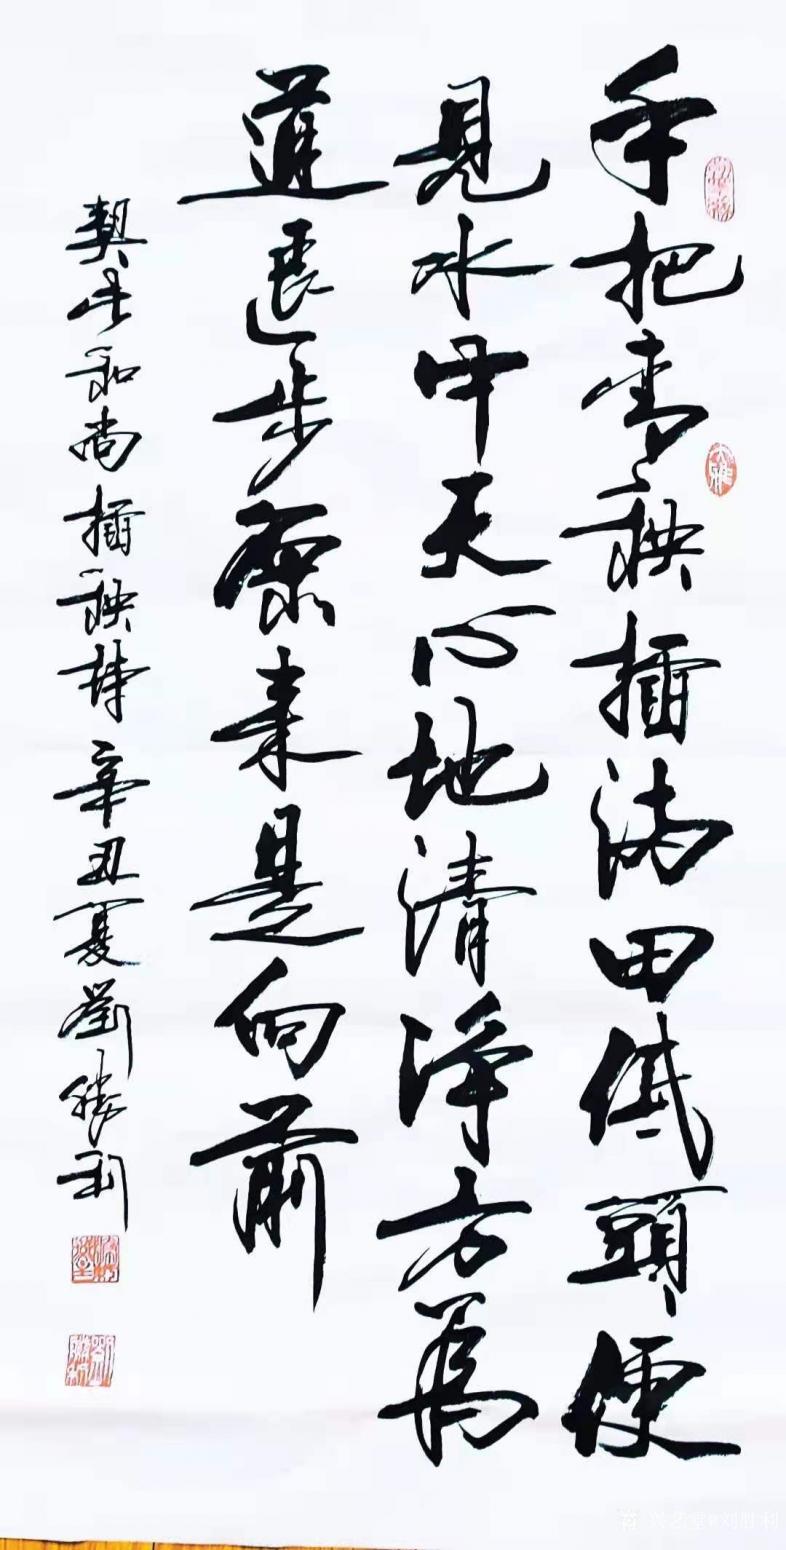 手把青秧插满田低頭便
見水中天心地清净方為
道退步原来是向前
契此和尚插秧诗辛丑夏劉勝利